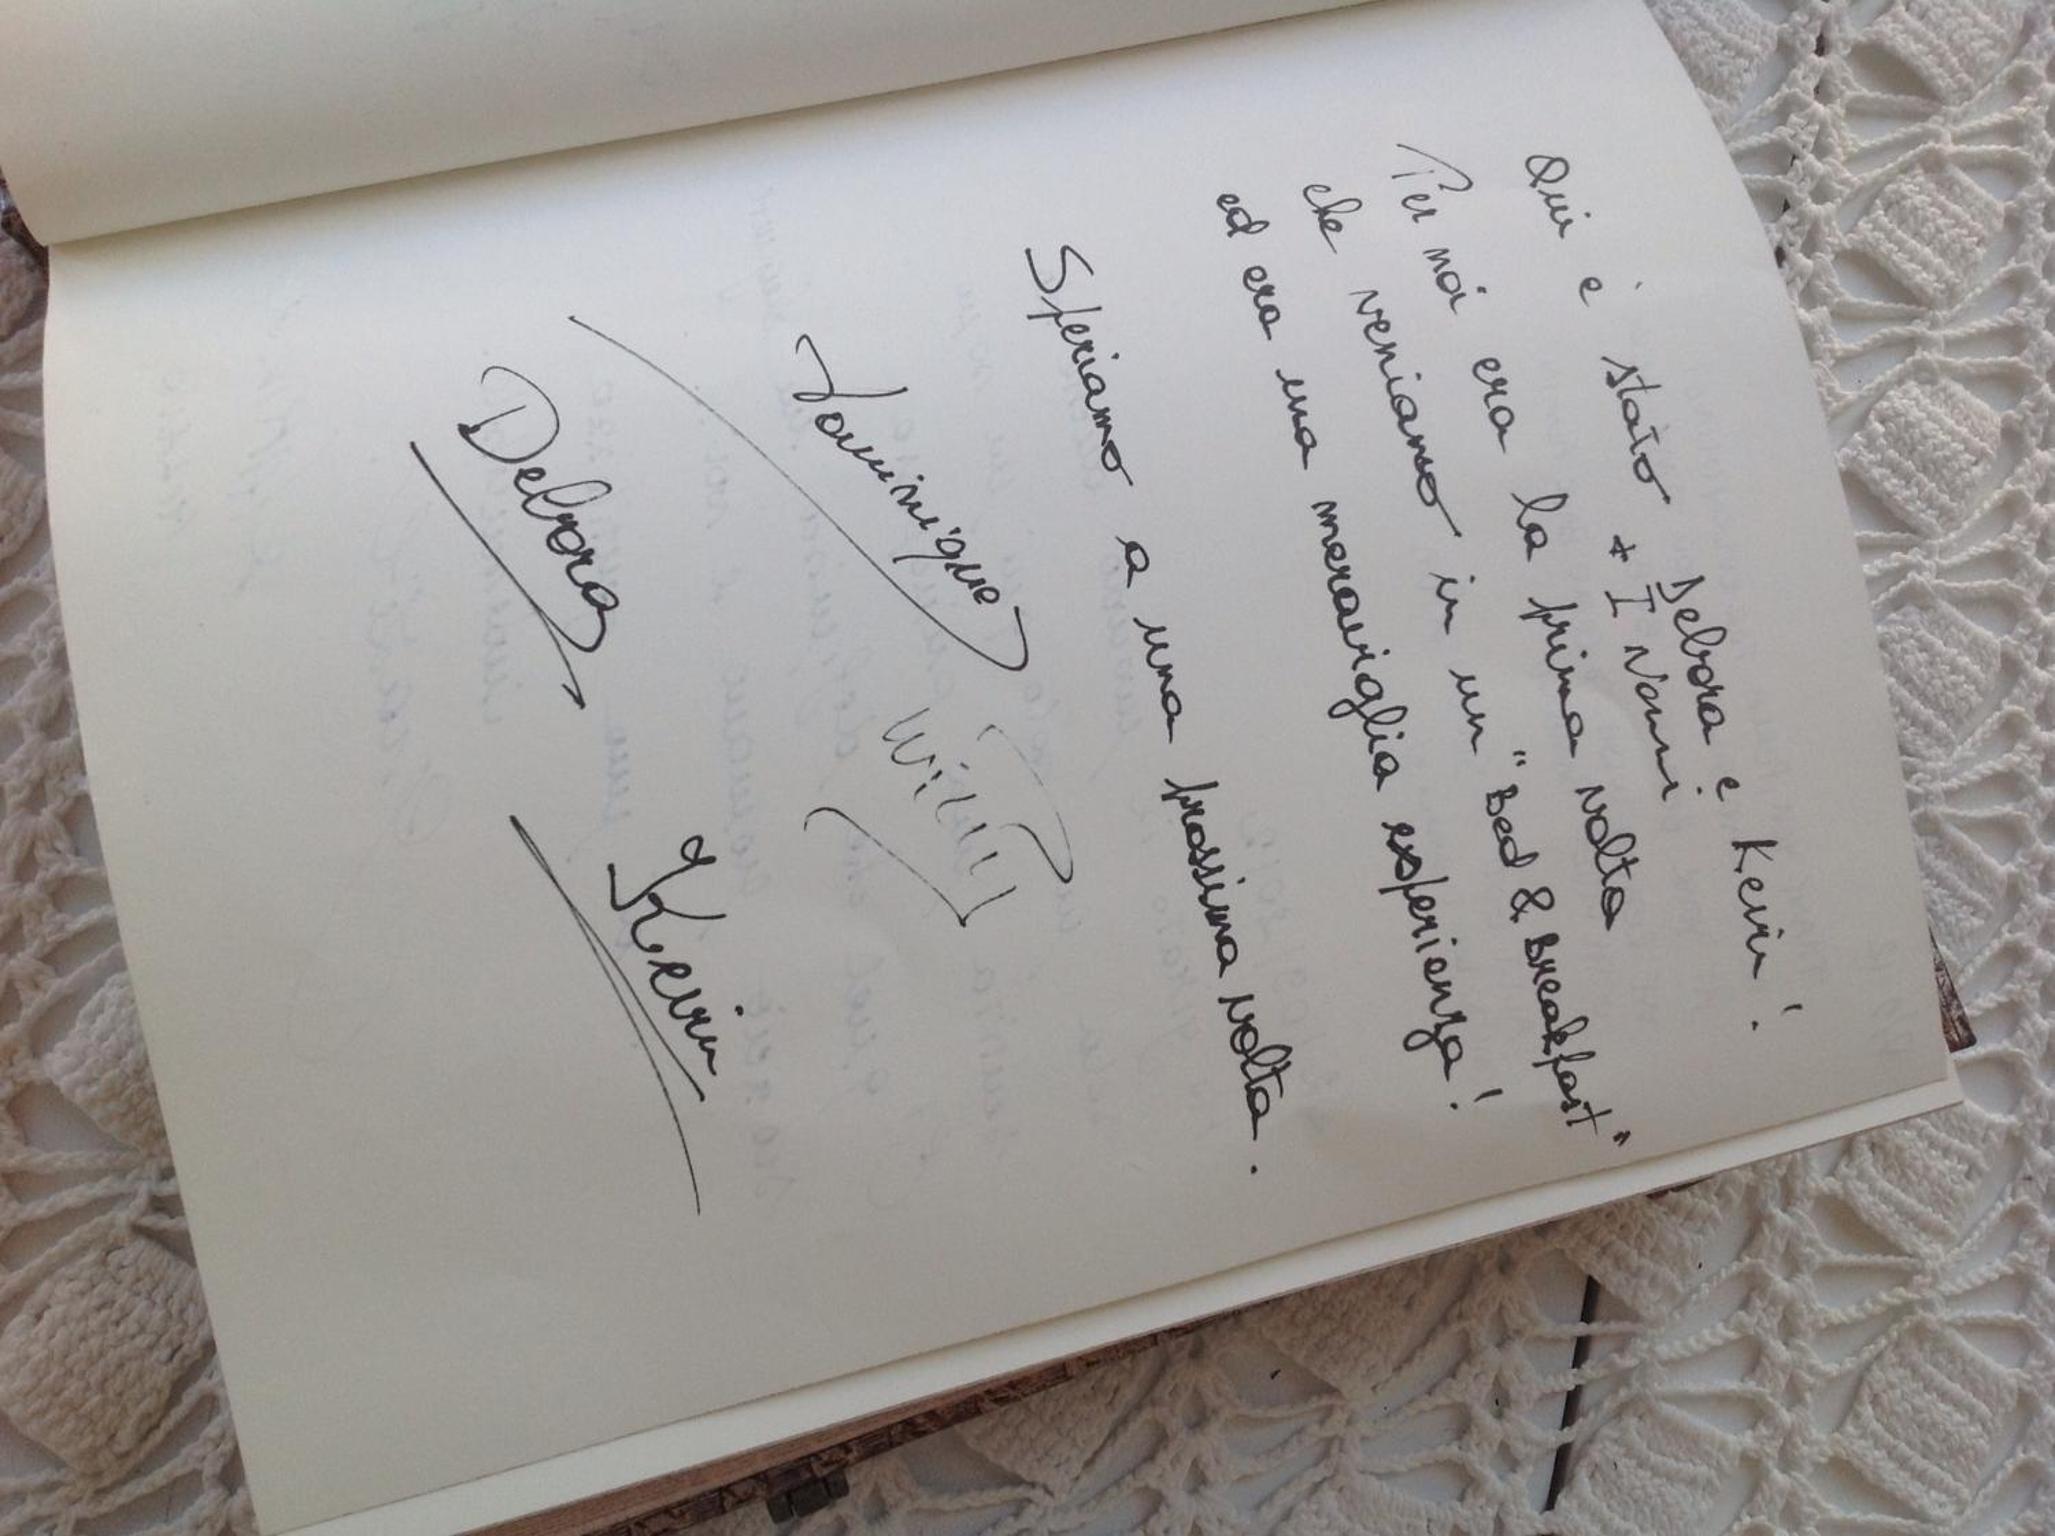 Qui è stato Debora e Kevin!
+ I Nanni
Per noi era la prima volta
che veniamo in un "Bed & Breakfast"
ed era una meraviglia esperienza!
Speriamo a una prossima volta.
Dominique
Debora
& Kevin